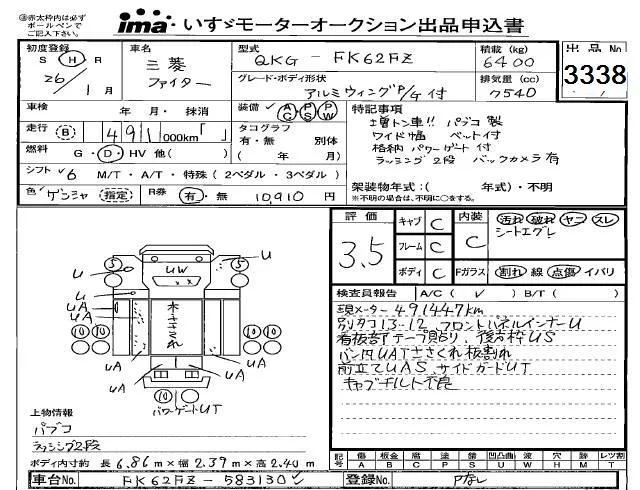 ※赤太枠内は必ず
ボールペンで
ご記入下さい。
ima いすゞモーターオークション出品申込書
初度登録 S H R 26年 1月
車名 三菱 ファイター
型式 QKG - FK62FZ
積載 (kg) 6400
出品No 3338
グレード・ボディ形状 アルミウィングP/G付
排気量 (cc) 7540
車検 年 月・抹消
装備 AC PS PW
走行 B 491,000km「 」
タコグラフ 有・無 別体 ( 年 月)
燃料 G・D・HV 他( )
シフト 6 M/T・A/T・特殊(2ペダル・3ペダル)
色 ゲンシャ 指定 R券 有・無 10,910円
特記事項
増トン車!! パブコ製
ワイド幅 ベット付
格納パワーゲート付
ラッシング2段 バックカメラ有
架装物年式:( 年式)・不明
※不明の場合は、不明に○をする。
評価 3.5
キャブ C
フレーム C
ボディ C
内装 C
Fガラス
汚れ 破れ ヤニ スレ
シートエグレ
割れ 線 点傷 イバリ
検査員報告 A/C( ✓ ) B/T( )
現メーター491447km
別タコ13-12 フロントパネルインナーU
看板部テープ貼り、後方枠US
バン内UATささくれ板割れ
前立てUAS、サイドガードUT
キャブチルト不良
5 5
U U
UW
××
U
UA
UA
UA
木ささくれ
10 10 10 10
UA UA UA UA
パワーゲートUT
上物情報
パブコ
ラッシング2段
ボディ内寸約 長6.86m×幅2.39m×高2.40m
記号 傷 A 板金 B 腐 C サビ S 凹凸曲 U 波 W 穴 H 跡 M 痛 T レツ割 T
車台No. FK62FZ-583130
登録No. Pなし